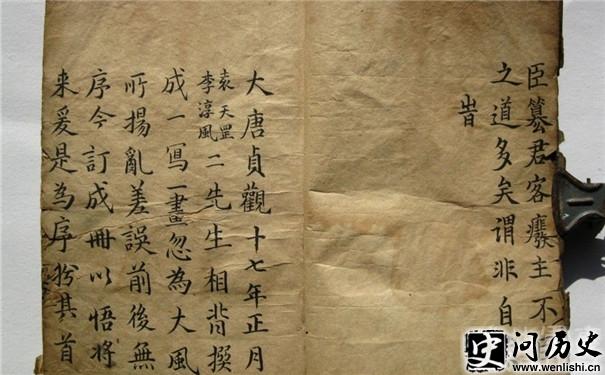 臣篡君客癈主不
之道多矣謂非自
旹
大唐貞觀十七年正月
袁天罡
李淳風
二先生相背撰
成一寫一畫忽為大風
所揚亂差誤前後無
序今訂成冊以悟將
来爰是為序於其首
问历史
www.wenlishi.cn